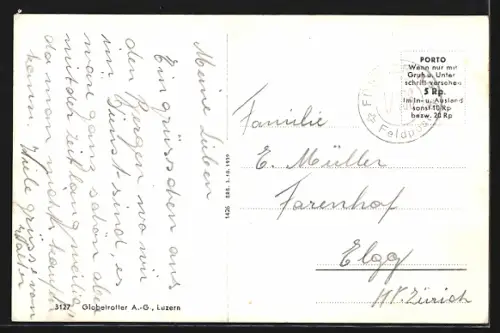 Meine Lieben
Ein grüsschen aus
den Bergen wo wir
im Dienst sind, es
war ganz schön aber
mit der Zeit langweilig
da man nicht
kann. Viele grüsse von
Walter
3127 Globetrotter A.-G., Luzern
1426 BRB. 3.10.1939
PORTO
Wenn nur mit
Gruß u. Unter
schrift versehen
5 Rp.
Im In- u. Ausland
sonst 10 Rp
bezw. 20 Rp
Feldpost
Familie
E. Müller
Farenhof
Elgg
Kt. Zürich